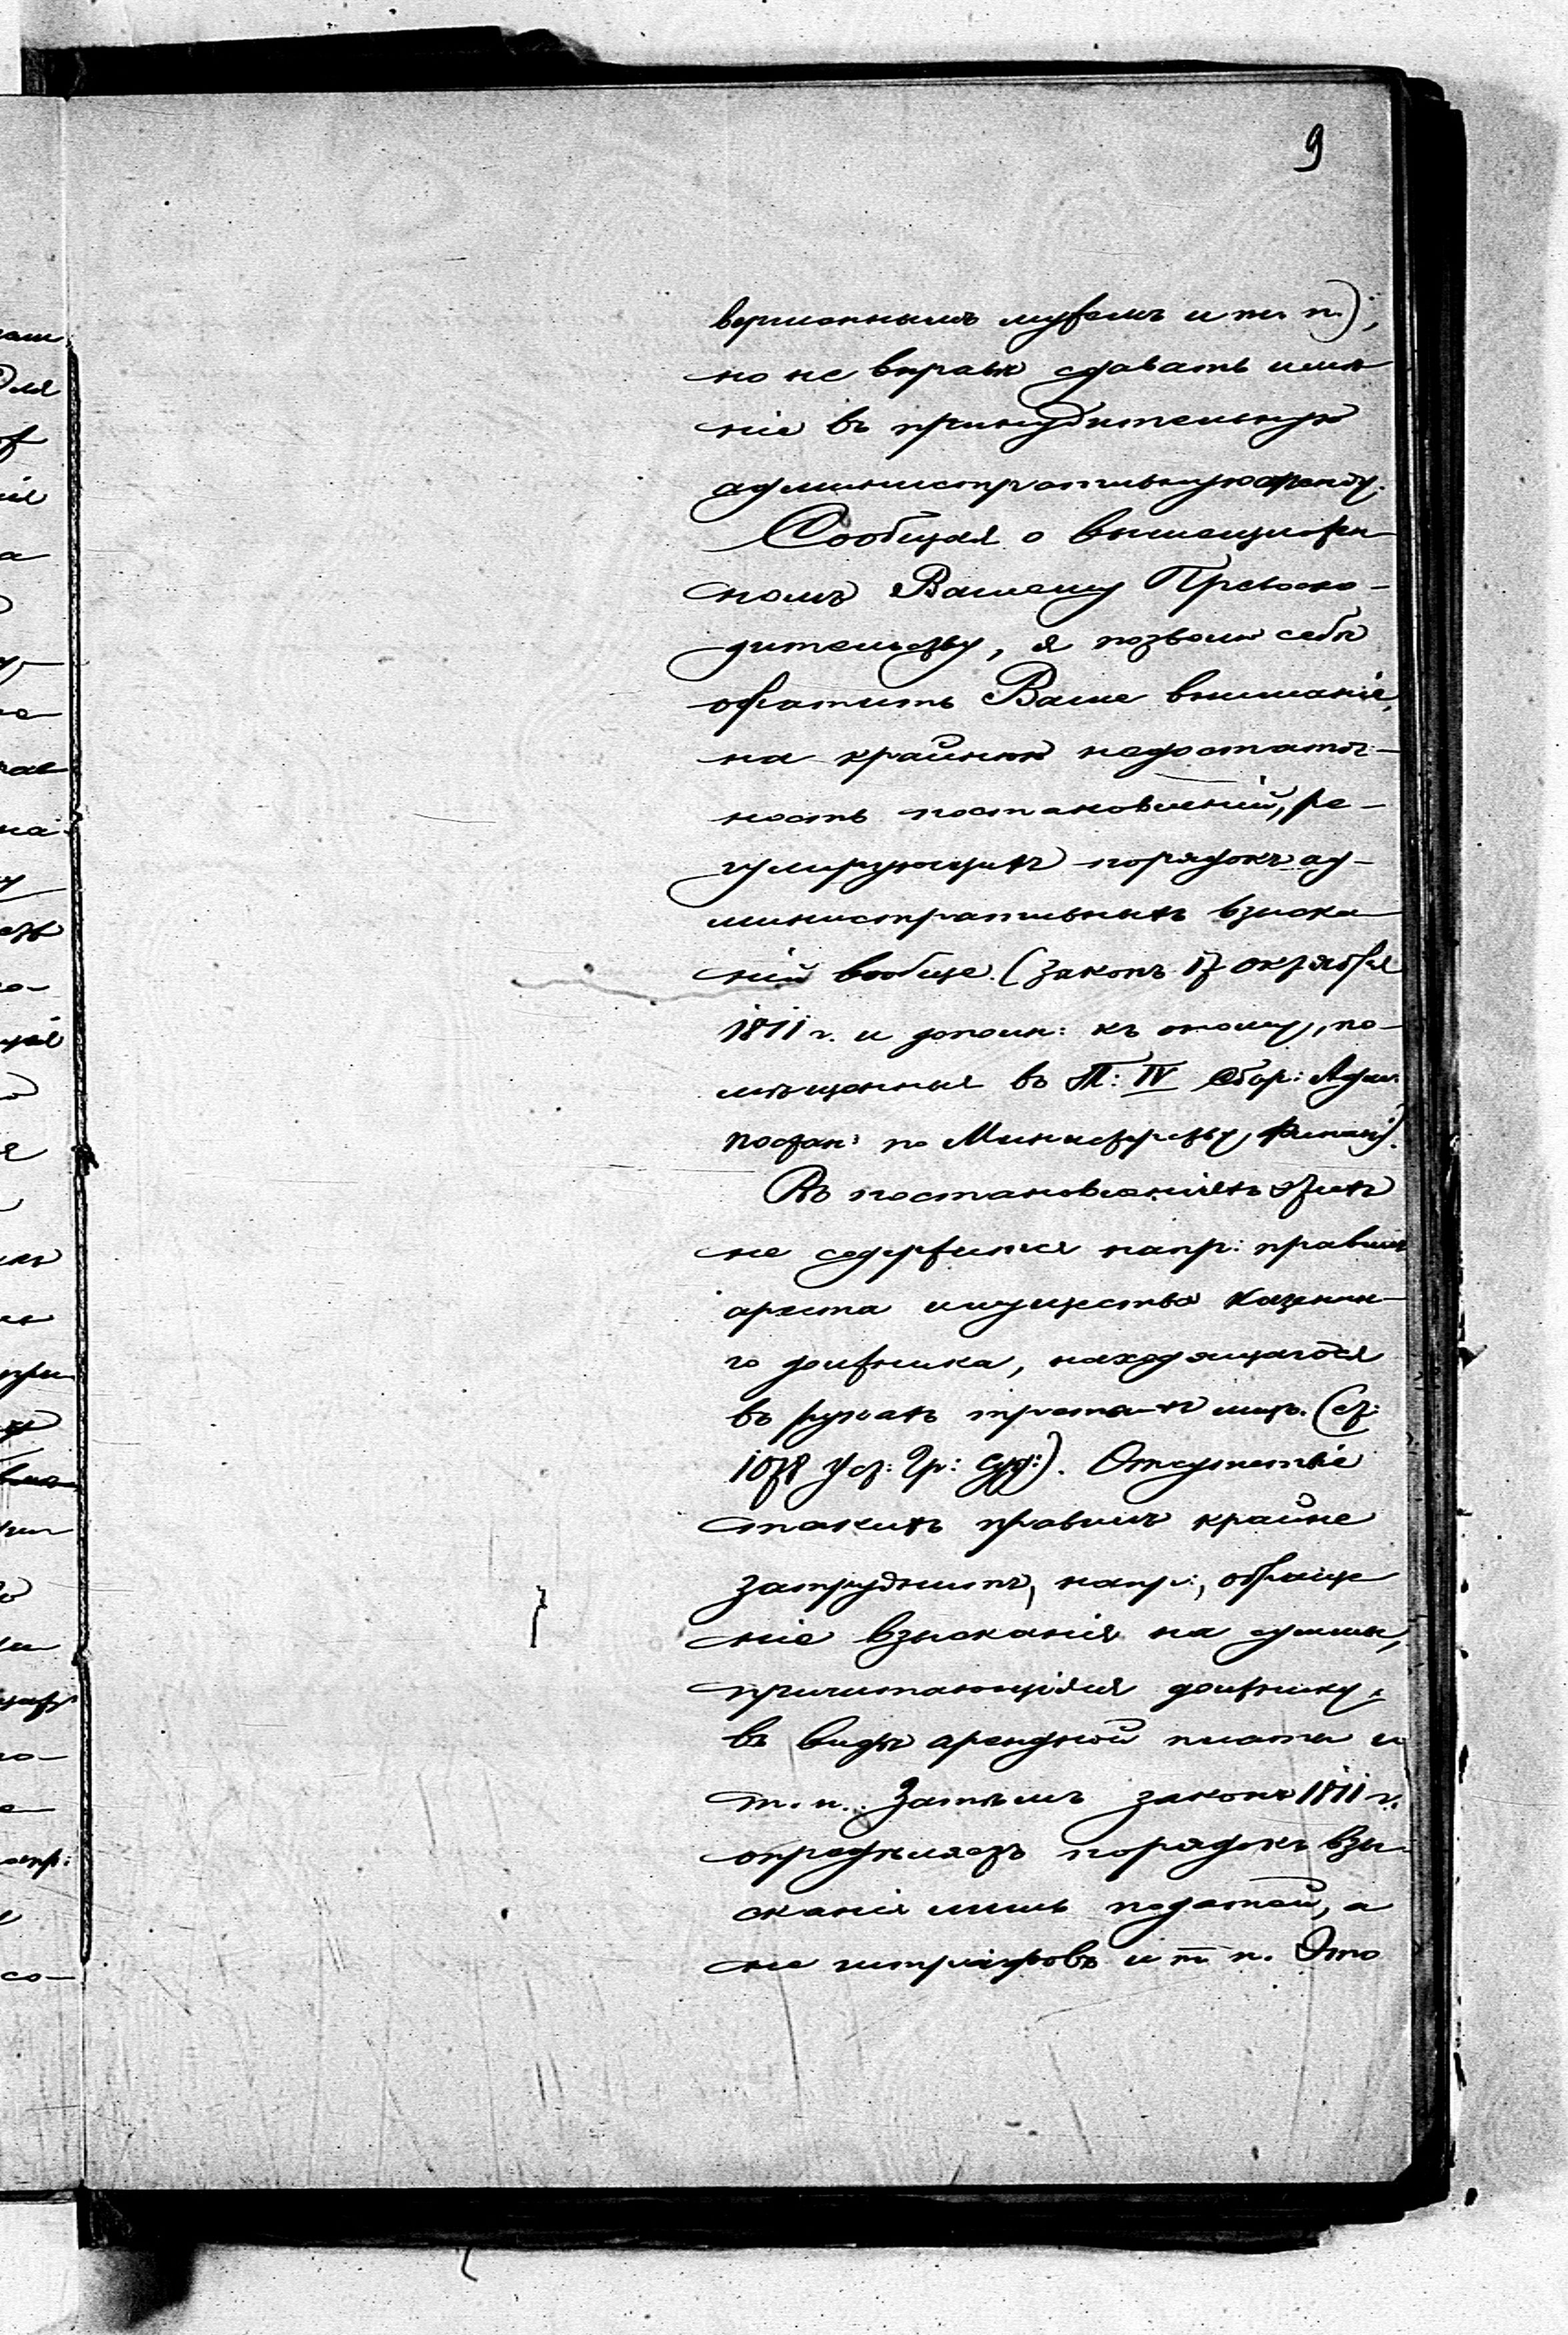 9
вершеннымъ мужемъ и т. п.);
но не вправѣ сдавать имѣ
ніе въ принудительную
административную аренду.
Сообщая о вышеизложен-
номъ Вашему Превосхо-
дительству, я позволю себѣ
обратить Ваше вниманіе,
на крайнюю недостаточ-
ность постановленій, ре-
гулирующихъ порядокъ ад-
министративныхъ взыска
ній вообще. (Законъ 17 октября
1811 г. и дополн: къ оному, по-
мѣщенныя въ Т: IV Сбор: Адм.
постан: по Министерству Финанс).
Въ постановленіяхъ этихъ
не содержится напр: правилъ
ареста имущества казенна-
го должника, находящагося
въ рукахъ третьихъ лицъ. (ст:
1078 Уст: Гр: Суд:). Отсутствіе
такихъ правилъ крайне
затруднитъ, напр:, обраще
ніе взысканія на суммы,
причитающіяся должнику
въ видѣ арендной платы и
т. п.. Затѣмъ законъ 1811 г.
опредѣляетъ порядокъ взы-
сканія лишь податей, а
не штрафовъ и т п. Это